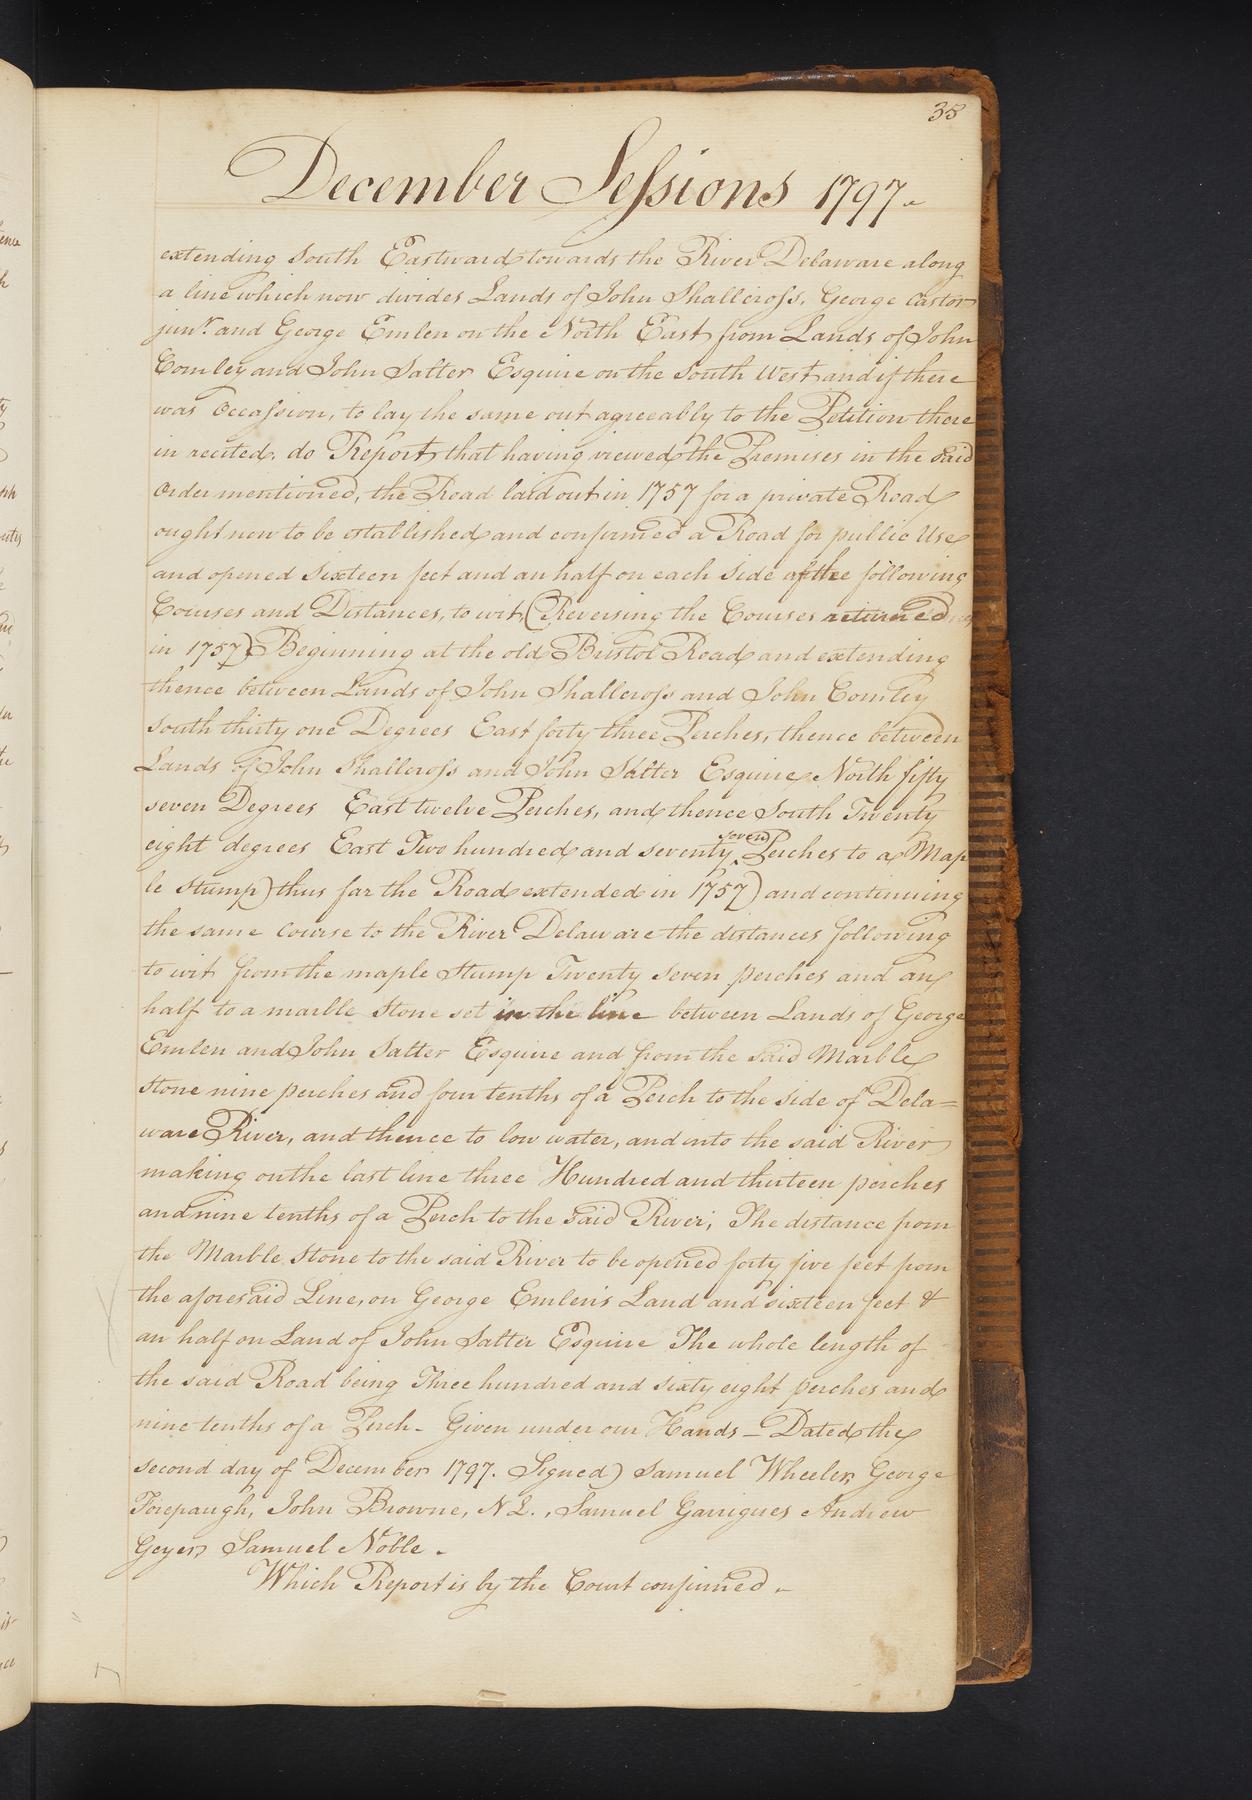 38
December Sessions 1797.
extending South Eastward towards the River Delaware along
a line which now divides Lands of John Shallcross, George Castor
junr. and George Emlen on the North East from Lands of John
Comley and John Salter Esquire on the South West and if there
was Occassion, to lay the same out agreeably to the Petition there
in recited. do Report, that having viewed the Premises in the said
Order mentioned, the Road laid out in 1757 for a private Road
ought now to be established and confirmed a Road for public Use
and opened Sixteen feet and an half on each Side of the following
Courses and Distances, to wit, (Reversing the Courses returned
in 1757) Beginning at the old Bristol Road and extending
thence between Lands of John Shallcross and John Comley
South thirty one Degrees East forty three Perches, thence between
Lands of John Shallcross and John Salter Esquire North fifty
seven Degrees East twelve Perches, and thence South Twenty
eight degrees East Two hundred and seventy seven Perches to a Map
le Stump) thus far the Road extended in 1757) and continuing
the same Course to the River Delaware the distances following
to wit from the maple Stump Twenty seven perches and an
half to a marble Stone set in the line between Lands of George
Emlen and John Salter Esquire and from the said Marble
Stone nine perches and four tenths of a Perch to the side of Dela=
ware River, and thence to low water, and into the said River
making on the last line three Hundred and thirteen perches
and nine tenths of a Perch to the said River; The distance from
the Marble Stone to the said River to be opened forty five feet from
the aforesaid Line, on George Emlen's Land and sixteen feet &
an half on Land of John Salter Esquire The whole length of
the said Road being Three hundred and sixty eight perches and
nine tenths of a Perch - Given under our Hands - Dated the
second day of December 1797. Signed) Samuel Wheeler, George
Forepaugh, John Browne, N L., Samuel Garrigues Andrew
Geyer, Samuel Noble.
Which Report is by the Court confirmed.